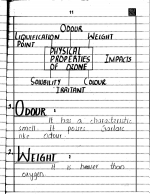 ODOUR
LIQUIFICATION POINT
WEIGHT
PHYSICAL PROPERTIES OF OZONE
IMPACTS
SOLUBILITY
COLOUR
IRRITANT
1. ODOUR :
It has a characteristic
smell. It
like odour.
2. WEIGHT :
It is heavier than
oxygen.